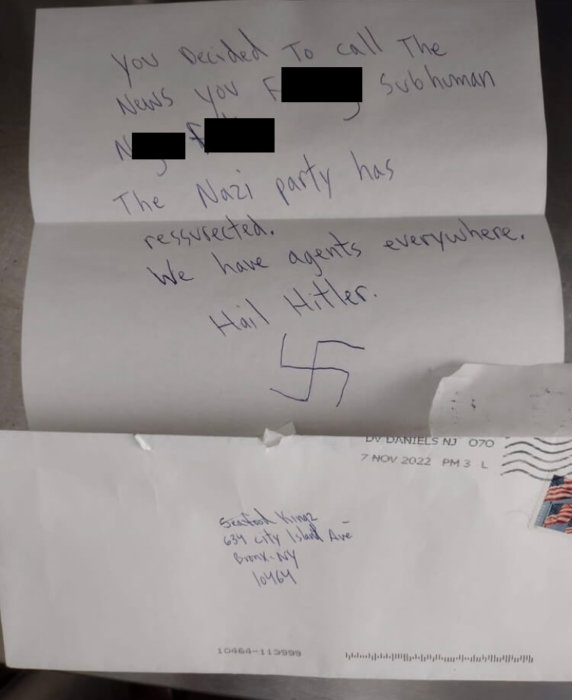 You Decided To call The
News you F Subhuman
N F
The Nazi party has
ressurected.
We have agents everywhere.
Hail Hitler.
DV DANIELS NJ 070
7 NOV 2022 PM 3 L
Seafood Kingz
634 City Island Ave
Bronx-NY
10464
10464-113999